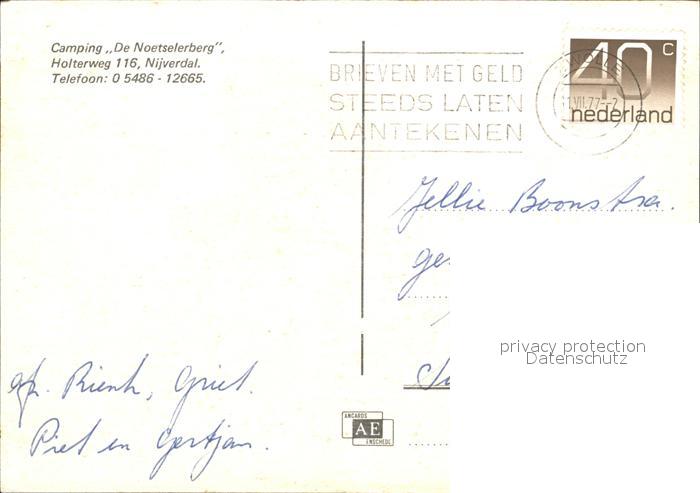 Camping „De Noetselerberg”,
Holterweg 116, Nijverdal.
Telefoon: 0 5486 - 12665.
BRIEVEN MET GELD
STEEDS LATEN
AANTEKENEN
ZWOLLE
VII.77
40 C
nederland
Jellie Boonstra.
privacy protection
Datenschutz
Rienk, Griet.
Piet en Gertjan.
ANCARDS
AE
ENSCHEDE